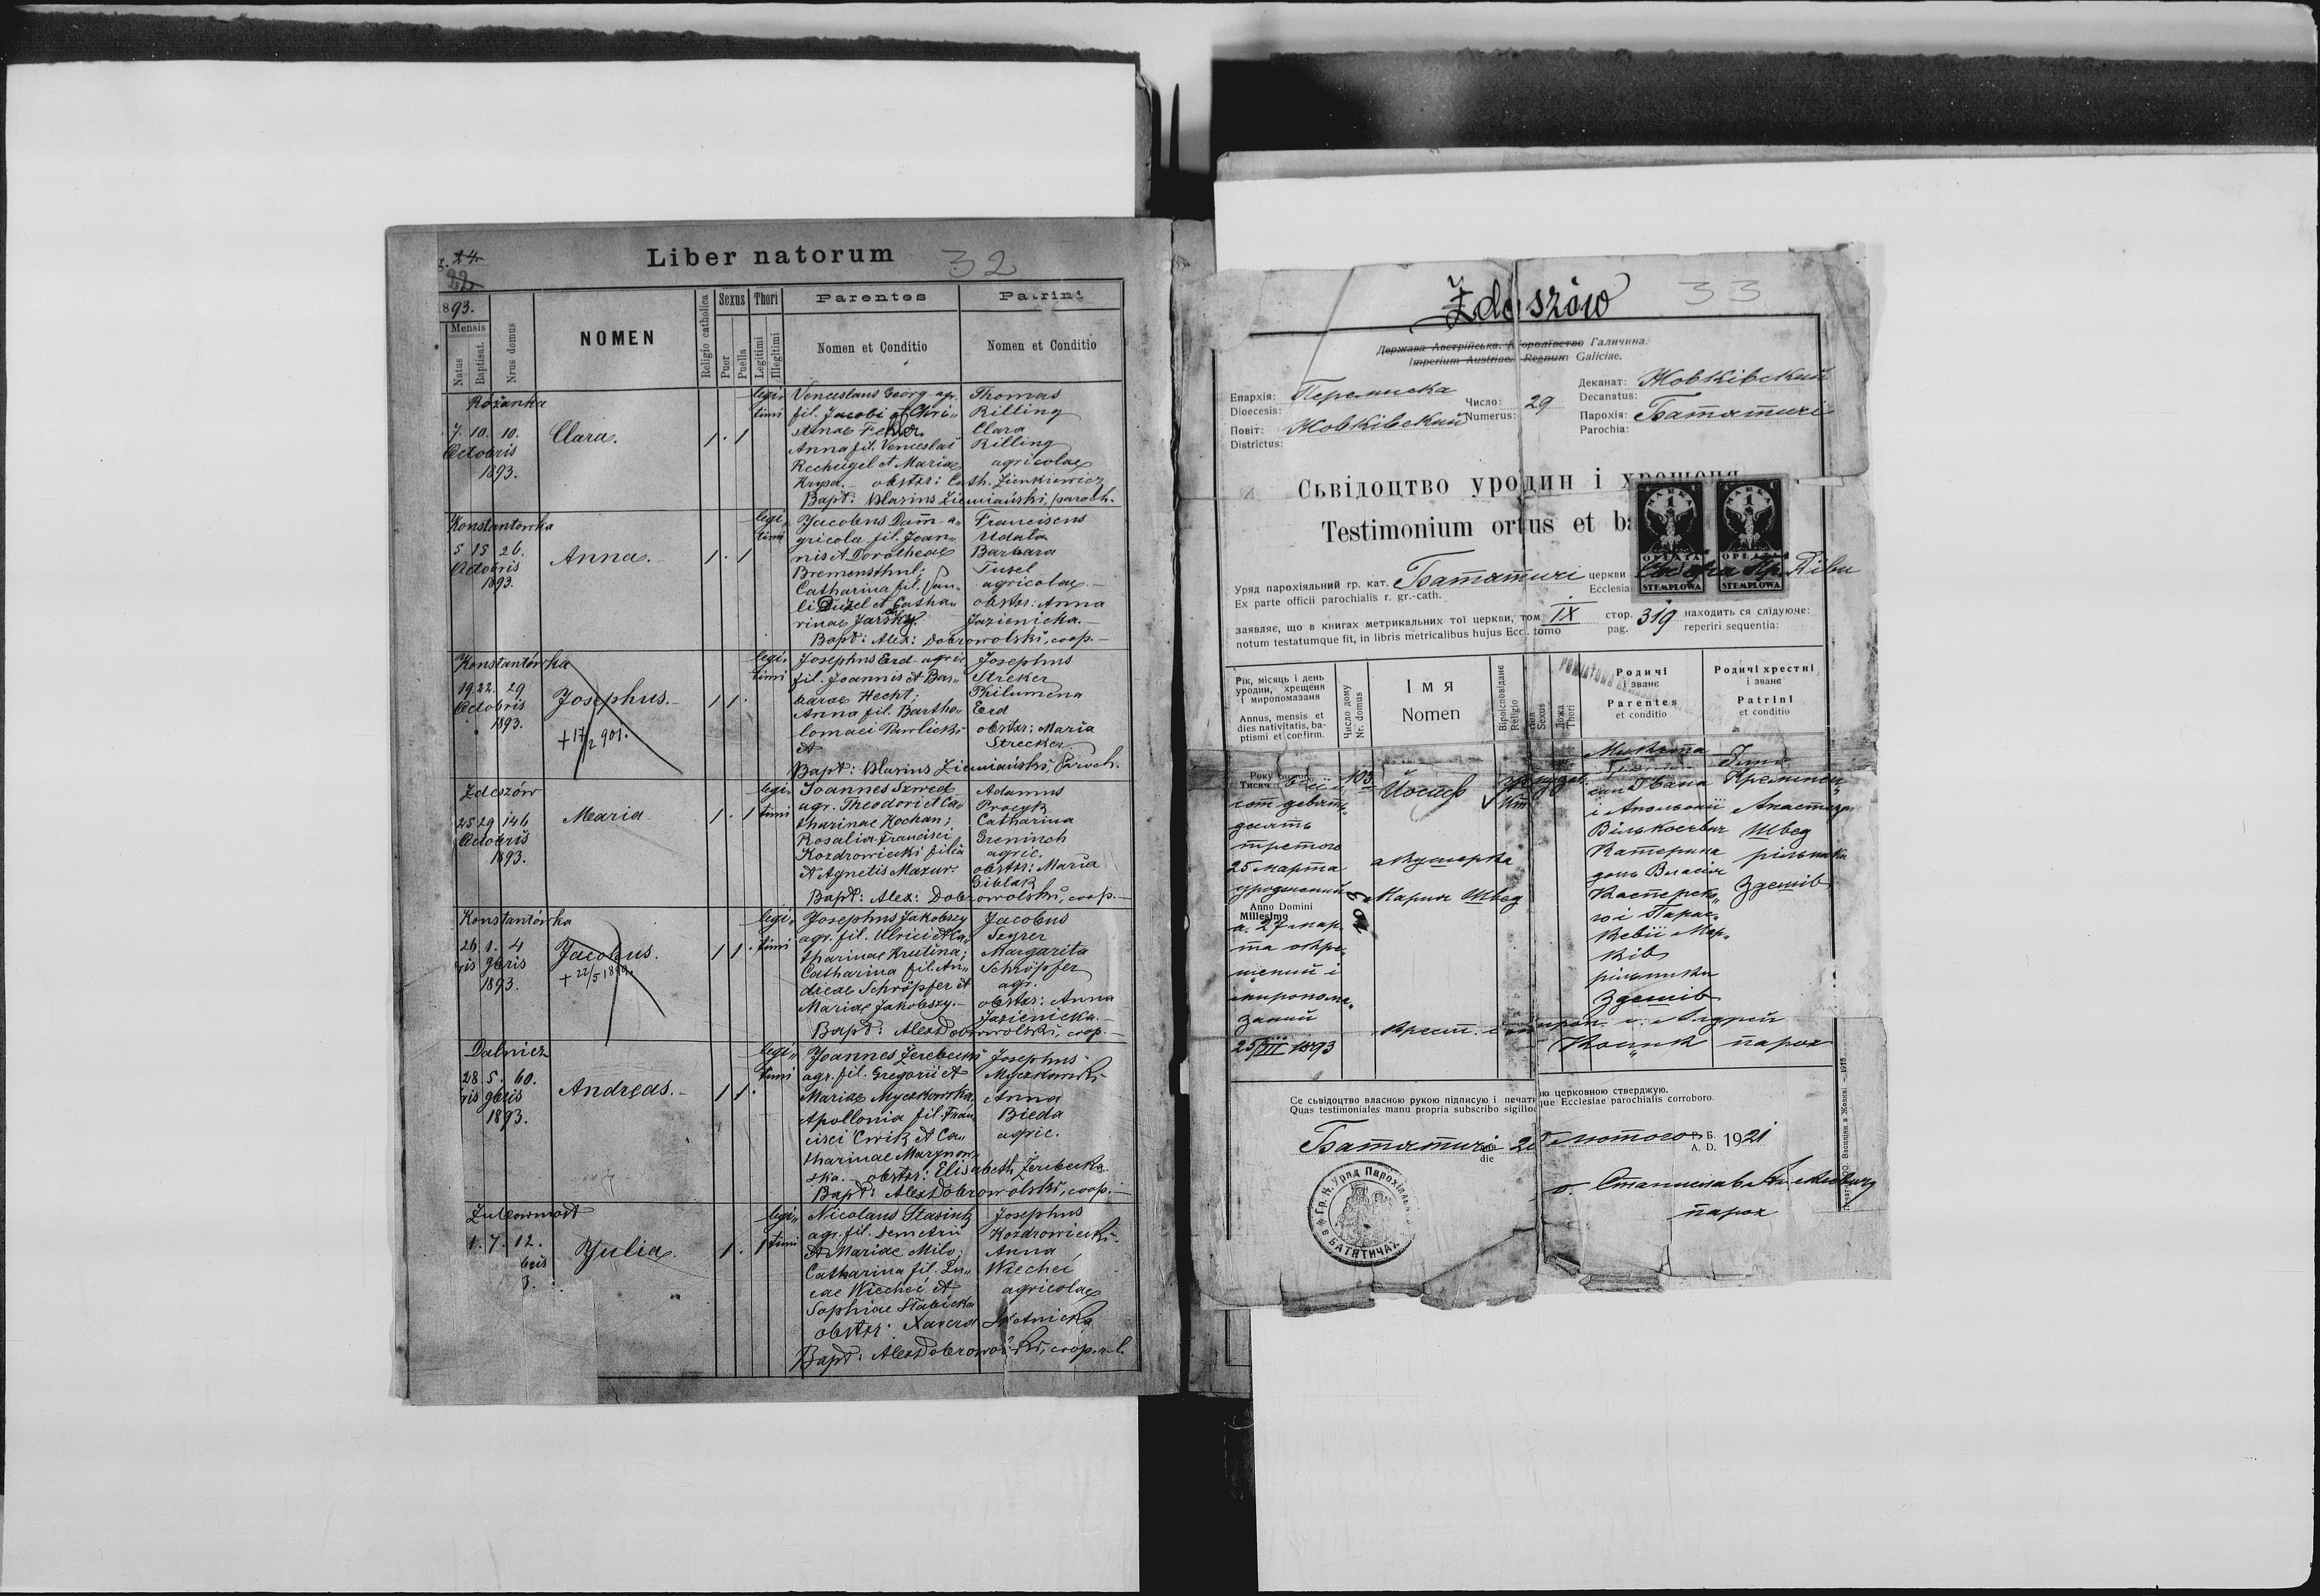 24
22
Liber natorum 32
893.
Mensis
Natus
Baptisat.
Nrus domus
NOMEN
Religio catholica
Sexus
Puer
Puella
Thori
Legitimi
Illegitimi
Parentes
Nomen et Conditio
Patrini
Nomen et Conditio
Różanka
7. 10. 10.
Octobris
1893.
Clara.
1 . 1
legi„
timi
Venceslaus Georg agr.
fil. Jacobi et Chri„
stinae
Anna fil. Venceslai
Rechügel et Mariae
Krypa. obstxr: Cath. Zienkiewicz
Bapt: Blasius Ziemiański, paroch.
Thomas
Rilling
Clara
Rilling
agricolae
Konstantówka
5 15 26.
Octobris
1893.
Anna.
1 . 1
legi„
timi
Jacobus Dam̄ a„
gricola fil. Joan„
nis et Dorotheae
Catharina fil. Pau„
li Duzel et Catha„
rinae Jarsky.
Bapt: Alex: Dobrowolski, coop. —
Franciscus
Udala
Barbara
Tusel
agricolae. —
obstxr: Anna
Jazienicka. —
Konstantówka
19. 22. 29
Octobris
1893.
Josephus. —
+ 17/2 901.
1 1 .
legi„
timi
Josephus Erd agric.
fil. Joannis et Bar„
barae Hecht;
Anna fil. Bartho„
lomaei Pawlicki
et
Bapt: Blasius Ziemiański, Paroch.
Josephus
Streker
Philumena
Erd
obstxr: Maria
Strecker
Zdeszów
25 29 146
Octobris
1893.
Maria
1 . 1
legi„
timi
Joannes Szwed
agr. Theodori et Ca„
tharinae Kochan;
Rosalia Francisci
Kozdrowiecki filia
et Agnetis Mazur.
Bapt: Alex: Dobrowolski, coop. —
Adamus
Procyk
Catharina
Greninch
agric.
obstxr: Maria
Giblak
Konstantówka
26. 1. 4
ris 9bris
1893.
Jacobus.
1 1 .
legi„
timi
Josephus Jakobszy
agr. fil. Ulrici et Ca„
tharinae Krutina;
Catharina fil. An„
dreae Schröpfer et
Mariae Jakobszy. —
Bapt: Alex Dobrowolski, coop. —
Jacobus
Seyrer
Margarita
Schröpfer
agr.
obstxr: Anna
Jazienicka. —
Dalnicz
28. 5. 60.
ris 9bris
1893.
Andreas. —
1 1 .
legi„
timi
Joannes Żerebecki
agr. fil. Gregorii et
Mariae Myczkowska;
Apollonia fil. Fran„
cisci Ćwik et Ca„
tharinae Marynow„
ska. — obstxr: Elisabeth Żerebecka.
Bapt: Alex Dobrowolski, coop. —
Josephus
Myczkowski
Anna
Bieda
agric.
1. 7. 12.
bris
3.
Julia.
1 . 1
legi„
timi
Nicolaus Stasiuk
agr. fil. Demetrii
et Mariae Milo;
Catharina fil. Lu„
cae Wiecheć et
Sophiae Słabicka
obstxr: Xavera Skotnicka
Josephus
Kozdrowiecki
Anna
Wiecheć
agricolae
Zdeszów 33
Держава Австрійська. Королївство Галичина.
Imperium Austriae. Regnum Galiciae.
Епархія: Перемиска
Dioecesis:
Повіт: Жовківский
Districtus:
Число: 29
Numerus:
Деканат: Жовківский
Decanatus:
Парохія: Батятичі
Parochia:
Сьвідоцтво уродин і хрещеня
Testimonium ortus et ba
MARKA 1 OPŁATA STEMPLOWA
MARKA 1 OPŁATA STEMPLOWA
Уряд парохіяльний гр. кат. Батятичі церкви
Ex parte officii parochialis r. gr.-cath. Ecclesia
заявляє, що в книгах метрикальних тої церкви, том IX стор. 319 находить ся слїдуюче:
notum testatumque fit, in libris metricalibus hujus Eccl. tomo pag. reperiri sequentia:
Рік, місяць і день
уродин, хрещеня
і миропомазаня
Annus, mensis et
dies nativitatis, ba-
ptismi et confirm.
Число дому
Nr. domus
Імя
Nomen
Віроісповідане
Religio
Sexus
Ложа
Thori
Родичі
і званє
Parentes
et conditio
Родичі хрестні
і званє
Patrini
et conditio
Року
Тисяч вісїм
сот девять„
десять
третого
25 марта
уроджений
Anno Domini
Millesimo
а 27 мар„
та охре„
щений і
миропома„
заний
25/III 1893
103
Йосиф
акушерка
Мария Швед
Микита
син Івана
і Апольонії
Вількосевич
Катерина
донь Власія
Кастерско„
го і Парас„
кевії Мар„
ків
рільники
Здешів
Ілько
Креминец„
Анастазія
Швед
рільники
Здешів
Андрей
Кошик парох
Се сьвідоцтво власною рукою підписую і печатю церковною стверджую.
Quas testimoniales manu propria subscribo sigilloque Ecclesiae parochialis corroboro.
Батятичі
die
лютого Р. Б. 1921
A. D.
о. Станислав
парох
Гр. к. Уряд Парохіяльн
в БАТЯТИЧАХ